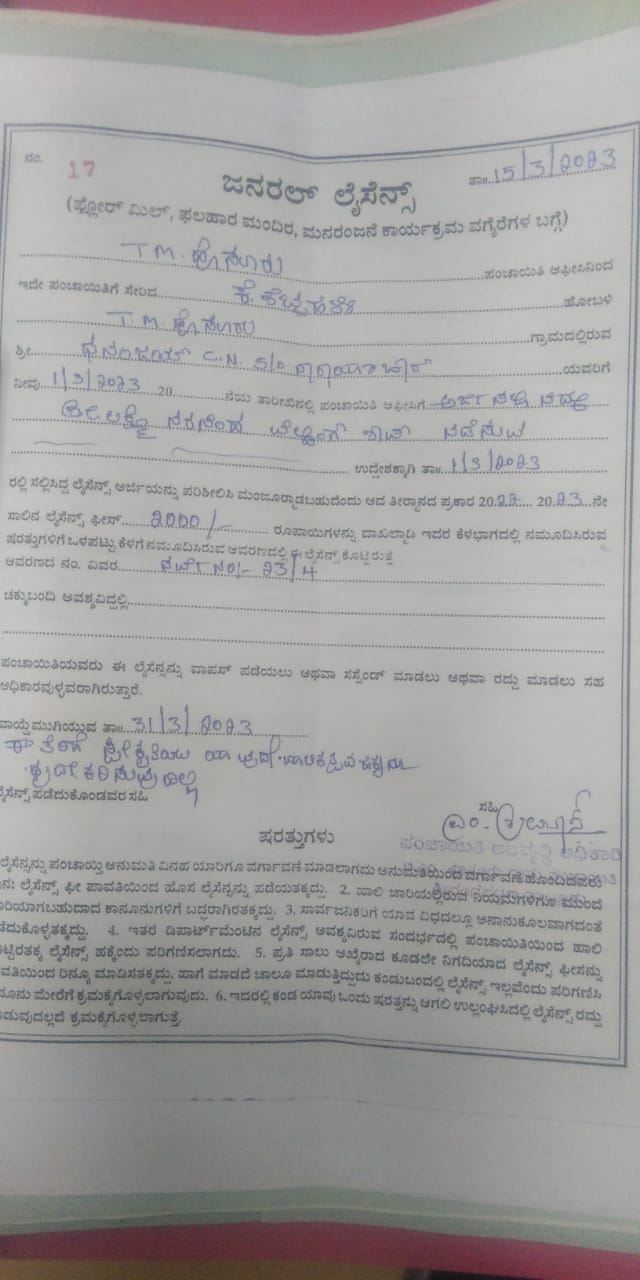 ನಂ. 17 ತಾ॥ 15/3/2023
ಜನರಲ್ ಲೈಸೆನ್ಸ್
(ಫ್ಲೋರ್ ಮಿಲ್, ಫಲಹಾರ ಮಂದಿರ, ಮನರಂಜನೆ ಕಾರ್ಯಕ್ರಮ ವಗೈರೆಗಳ ಬಗ್ಗೆ)
T.M. ಹೊಸೂರು ಪಂಚಾಯಿತಿ ಆಫೀಸಿನಿಂದ
ಇದೇ ಪಂಚಾಯಿತಿಗೆ ಸೇರಿದ ಕೆ. ಶೆಟ್ಟಹಳ್ಳಿ ಹೋಬಳಿ
T.M. ಹೊಸೂರು ಗ್ರಾಮದಲ್ಲಿರುವ
ಶ್ರೀ ಧನಂಜಯ್ C.N. S/o ಯವರಿಗೆ
ನೀವು 1/3/2023 20 ನೆಯ ತಾರೀಖಿನಲ್ಲಿ ಪಂಚಾಯಿತಿ ಆಫೀಸಿಗೆ
ಶ್ರೀ ಲಕ್ಷ್ಮೀ ನರಸಿಂಹ ನಡೆಸುವ
ಉದ್ದೇಶಕ್ಕಾಗಿ ತಾ॥ 1/3/2023
ರಲ್ಲಿ ಸಲ್ಲಿಸಿದ್ದ ಲೈಸೆನ್ಸ್ ಅರ್ಜಿಯನ್ನು ಪರಿಶೀಲಿಸಿ ಮಂಜೂರ್ಮಾಡಬಹುದೆಂದು ಆದ ತೀರ್ಮಾನದ ಪ್ರಕಾರ 2022 2023 ನೇ
ಸಾಲಿನ ಲೈಸೆನ್ಸ್ ಫೀಸ್ 2000/- ರೂಪಾಯಿಗಳನ್ನು ದಾಖಲ್ಮಾಡಿ ಇದರ ಕೆಳಭಾಗದಲ್ಲಿ ನಮೂದಿಸಿರುವ
ಷರತ್ತುಗಳಿಗೆ ಒಳಪಟ್ಟು ಕೆಳಗೆ ನಮೂದಿಸಿರುವ ಆವರಣದಲ್ಲಿ ಈ ಲೈಸೆನ್ಸ್ ಕೊಟ್ಟಿರುತ್ತೆ
ಆವರಣದ ನಂ. ವಿವರ ಸರ್ವೆ ನಂ/- 23/4
ಚಕ್ಕುಬಂದಿ ಅವಶ್ಯವಿದ್ದಲ್ಲಿ
ಪಂಚಾಯಿತಿಯವರು ಈ ಲೈಸೆನ್ಸನ್ನು ವಾಪಸ್ ಪಡೆಯಲು ಅಥವಾ ಸಸ್ಪೆಂಡ್ ಮಾಡಲು ಅಥವಾ ರದ್ದು ಮಾಡಲು ಸಹ
ಅಧಿಕಾರವುಳ್ಳವರಾಗಿರುತ್ತಾರೆ.
ವಾಯ್ದೆ ಮುಗಿಯ್ಯುವ ತಾ॥ 31/3/2023
ಲೈಸೆನ್ಸ್ ಪಡೆದುಕೊಂಡವರ ಸಹಿ
ಸಹಿ
ಷರತ್ತುಗಳು
ಪಂಚಾಯಿತಿ ಅಭಿವೃದ್ಧಿ ಅಧಿಕಾರಿ
ಲೈಸೆನ್ಸನ್ನು ಪಂಚಾಯ್ತಿ ಅನುಮತಿ ವಿನಹ ಯಾರಿಗೂ ವರ್ಗಾವಣೆ ಮಾಡಲಾಗದು ಅನುಮತಿಯಿಂದ ವರ್ಗಾವಣೆ ಹೊಂದಿದವರು
ಲೈಸೆನ್ಸ್ ಫೀ ಪಾವತಿಯಿಂದ ಹೊಸ ಲೈಸೆನ್ಸನ್ನು ಪಡೆಯತಕ್ಕದ್ದು. 2. ಹಾಲಿ ಜಾರಿಯಲ್ಲಿರುವ ನಿಯಮಗಳಿಗೂ ಮುಂದೆ
ಕಾನೂನುಗಳಿಗೆ ಬದ್ಧರಾಗಿರತಕ್ಕದ್ದು. 3. ಸಾರ್ವಜನಿಕರಿಗೆ ಯಾವ ವಿಧದಲ್ಲೂ ಅನಾನುಕೂಲವಾಗದಂತೆ
4. ಇತರ ಡಿಪಾರ್ಟ್‌ಮೆಂಟಿನ ಲೈಸೆನ್ಸ್ ಅವಶ್ಯವಿರುವ ಸಂದರ್ಭದಲ್ಲಿ ಪಂಚಾಯಿತಿಯಿಂದ ಹಾಲಿ
ಲೈಸೆನ್ಸ್ ಹಕ್ಕೆಂದು ಪರಿಗಣಿಸಲಾಗದು. 5. ಪ್ರತಿ ಸಾಲು ಅಖೈರಾದ ಕೂಡಲೇ ನಿಗದಿಯಾದ ಲೈಸೆನ್ಸ್ ಫೀಸನ್ನು
ರಿನ್ಯೂ ಮಾಡಿಸತಕ್ಕದ್ದು. ಹಾಗೆ ಮಾಡದೆ ಚಾಲೂ ಮಾಡುತ್ತಿದ್ದುದು ಕಂಡುಬಂದಲ್ಲಿ ಲೈಸೆನ್ಸ್ ಇಲ್ಲವೆಂದು ಪರಿಗಣಿಸಿ
ಮೇರೆಗೆ ಕ್ರಮಕೈಗೊಳ್ಳಲಾಗುವುದು. 6. ಇದರಲ್ಲಿ ಕಂಡ ಯಾವು ಒಂದು ಷರತ್ತನ್ನು ಆಗಲಿ ಉಲ್ಲಂಘಿಸಿದಲ್ಲಿ ಲೈಸೆನ್ಸ್ ರದ್ದು
ಕ್ರಮಕೈಗೊಳ್ಳಲಾಗುತ್ತೆ.